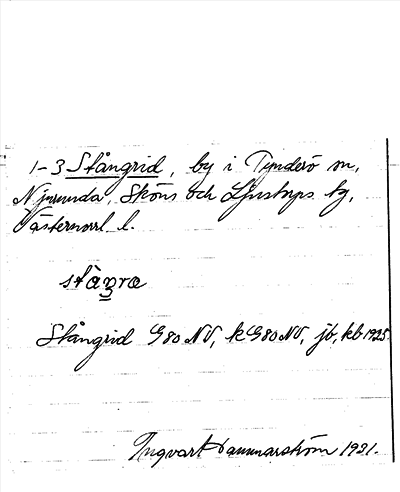 1-3 Stångrid, by i Tynderö sn,
Njurunda, Sköns och Ljustorps tg,
Västernorrl l.
Stångrid G80 NV, k G80 NV, jb, kb 1925.
Ingvar Hammarström 1921.